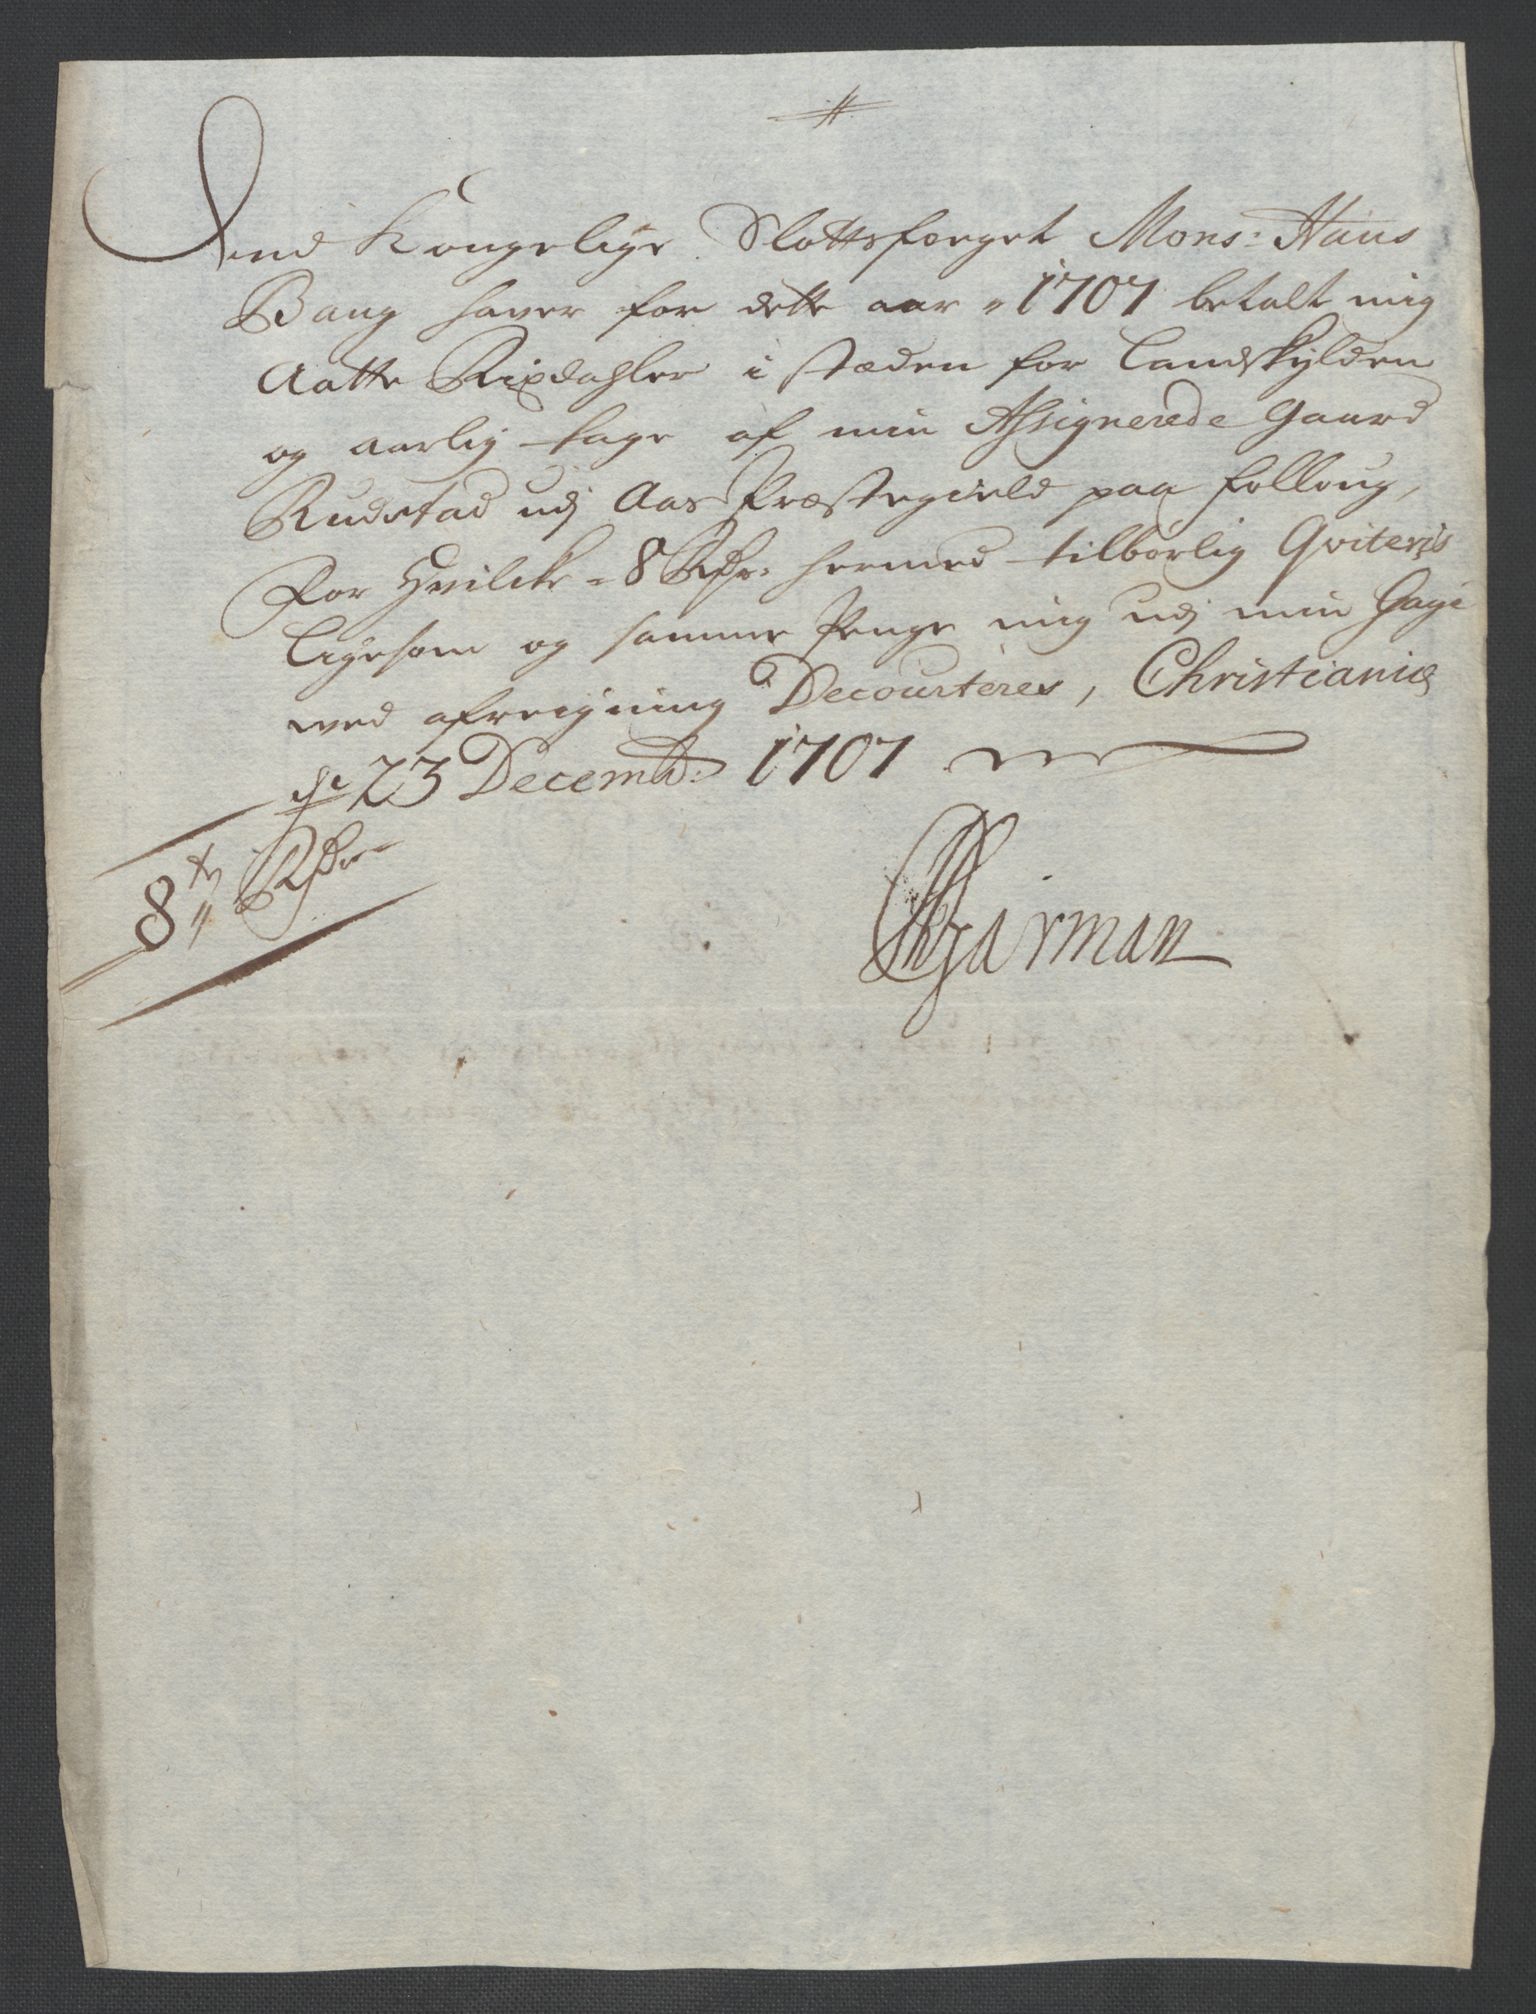 Den Kongelige Slottsfoeget Mons: Hans
Bang haver for dette aar 1707 betalt mig
Aatte Rixdahler i stæden for Landskylden
og aarlig tage af min Assignerede Gaard
Rudstad udj Aas Præstegield paa Folloug,
For Hvilcke 8 Rdr: hermed tilbørlig Qviteris
Ligesom og samme Penge mig udj min Gage
ved afreigning Decourteres, Christiania
de 23 Decemb: 1707
8 Rdr